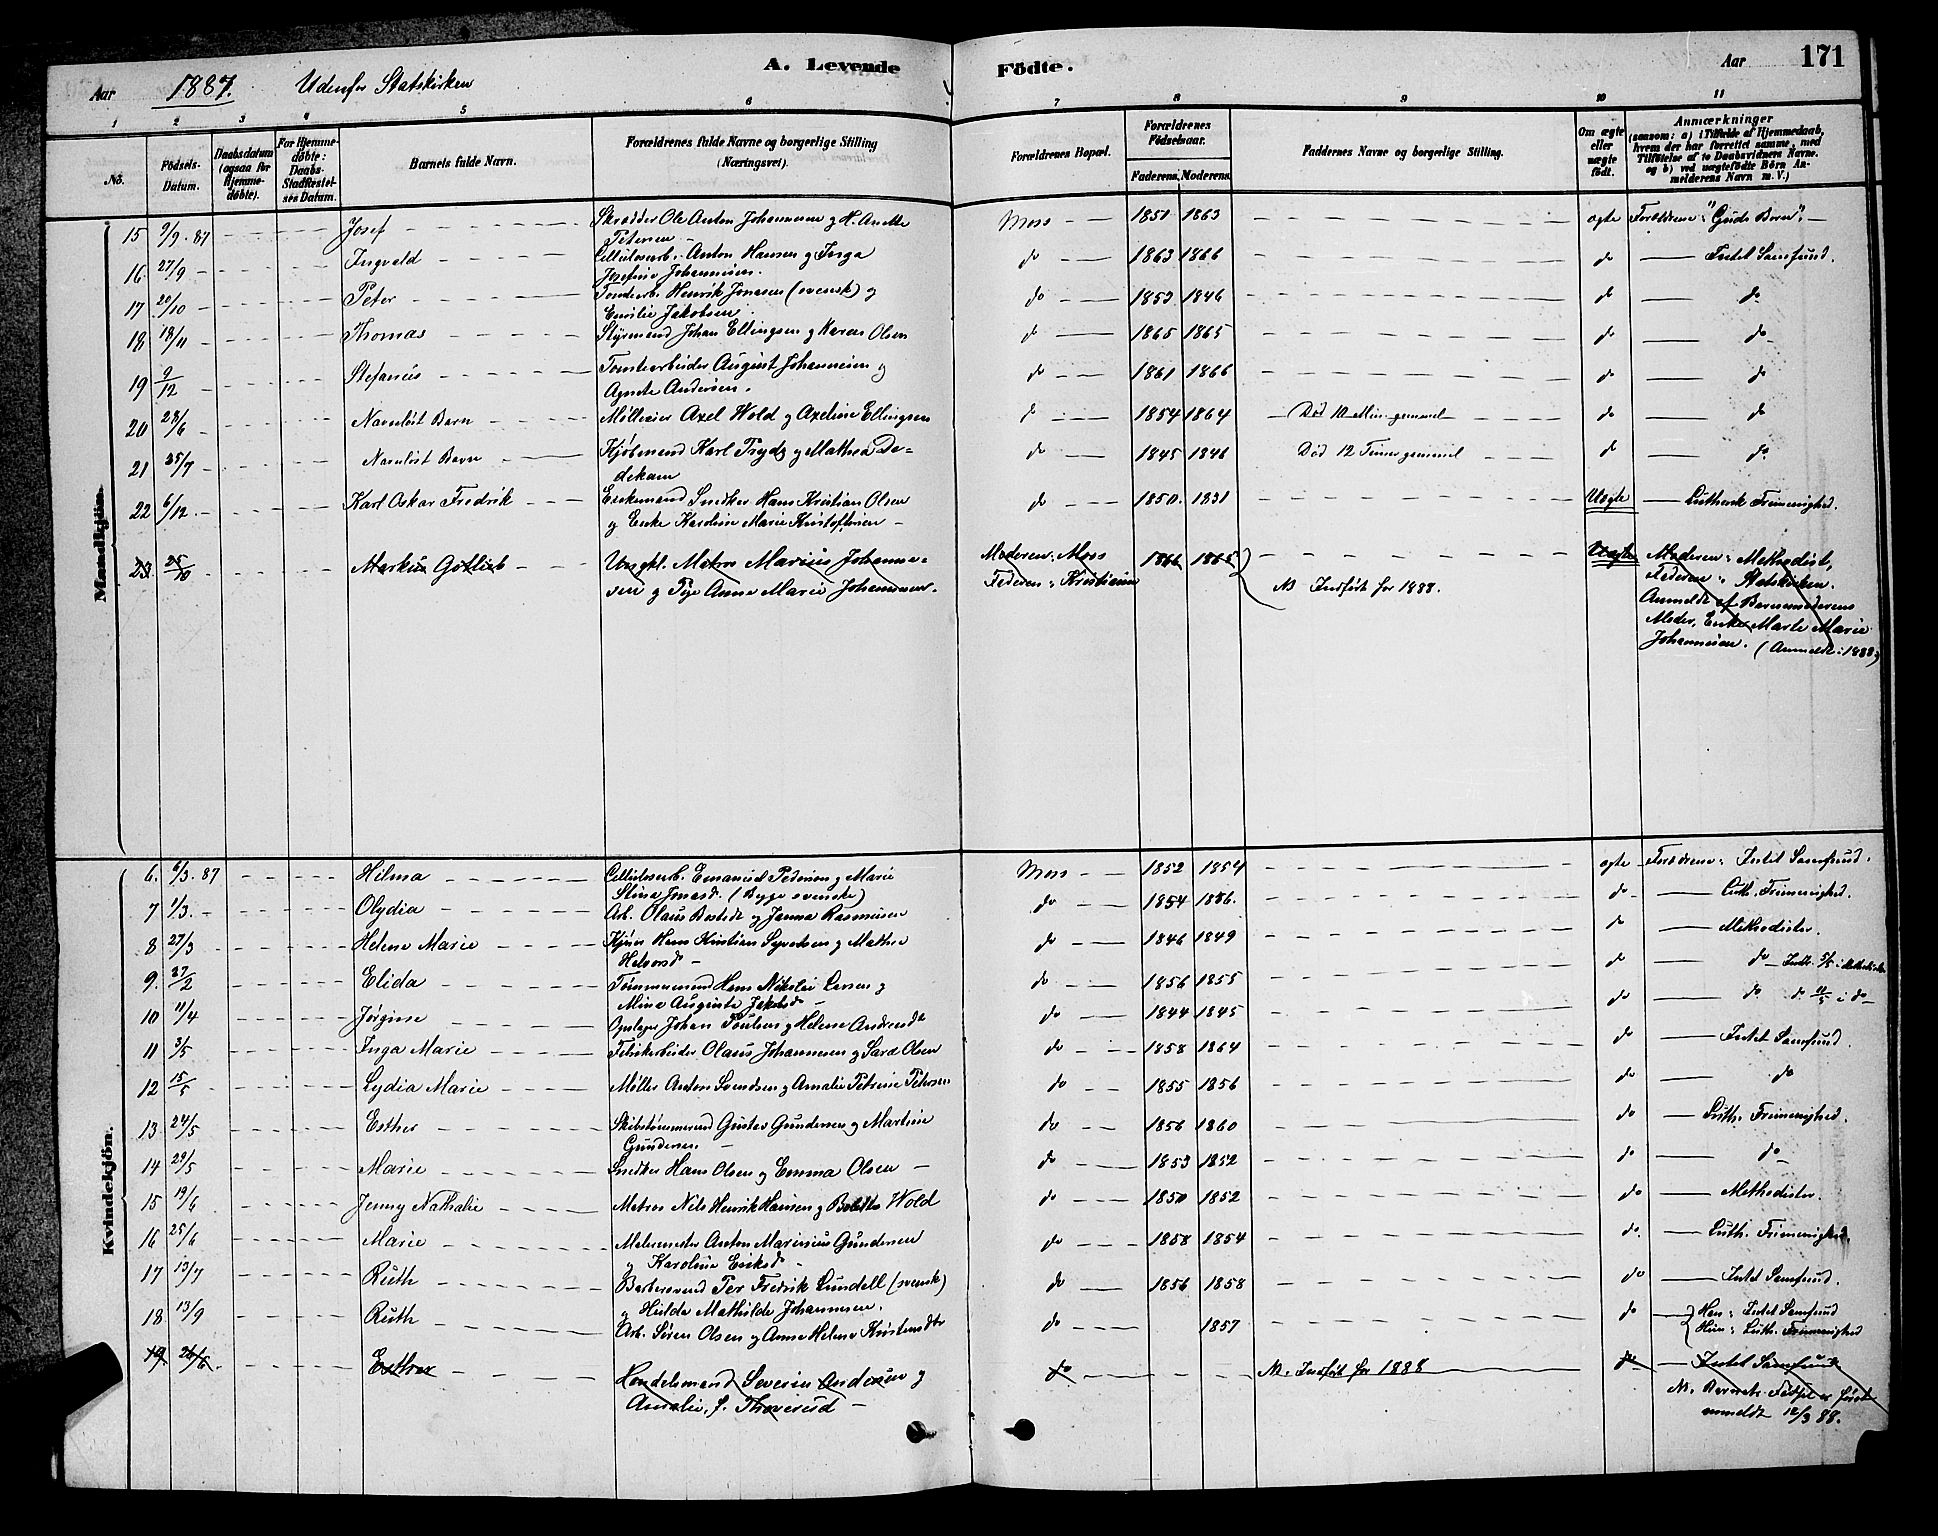 Aar 1887. Udenfor Statskirken A. Levende Födte. Aar 171
1 2 3 4 5 6 7 8 9 10 11
No. Födsels-Datum. Daabsdatum (ogsaa for Hjemmedøbte). For Hjemmedøbte: Daabs-Stadfæstelses Datum. Barnets fulde Navn. Forældrenes fulde Navne og borgerlige Stilling (Næringsvei). Forældrenes Bopæl. Forældrenes Födselsaar. Faderens. Moderens. Faddernes Navne og borgerlige Stilling. Om ægte eller uægte födt. Anmærkninger (saasom: a) i Tilfælde af Hjemmedaab, hvem der har forrettet samme, med Tilføielse af to Daabsvidners Navne. og b) ved uægtefödte Börn Anmelderens Navn m. V.)
Mandkjön.
15 9/9 87 Josef Skrædder Ole Anton Johannesen og H. Anette Petersen Moss 1851 1863 ægte Forældrene: "Guds Børn".
16 27/9 Ingvald Cellulosearb. Anton Hansen og Inga Josefine Johannesen. do 1863 1866 do Intet Samfund.
17 20/10 Peter Tomtearb. Henrik Jonasen (svensk) og Emilie Jakobsen do 1853 1846 do do
18 18/11 Thomas Styrmand Johan Ellingsen og Karen Olsen do 1865 1865 do do
19 9/12 Stefanus Tomtearbeider August Johannesen og Agnete Andersen. do 1861 1866 do do
20 23/6 Navnløst Barn Mølleeier Axel Wold og Axeline Ellingsen do 1854 1864 Død 10 Min. gammel do do
21 25/7 Navnløst Barn Kjøbmand Karl Trydz og Mathea Dedekam do 1845 1846 Død 12 Timer gammel do do
22 6/12 Karl Oskar Fredrik Enkemand Snedker Hans Kristian Olsen og Enke Karoline Marie Kristoffersen do 1850. 1831 Uægte Luthersk Frimenighed.
23 25/10 Markus Gotlieb Ungkl. Matros Marius Johannesen og Pige Anne Marie Johannesen. Moderen: Moss Faderen: Kristiania 1866 1865 M Indført for 1888. Uægte Moderen: Methodist, Faderen: Statskirken. Anmeldt af Barnemoderens Moder, Enke Marte Marie Johannesen. (Anmeldt i 1888)
Kvindekjön.
6. 6/3 87 Hilma Cellulosearb. Emanuel Pedersen og Marie Stina Jonasd. (Begge svenske) Moss 1852 1854 ægte Forældrene: Intet Samfund.
7 1/3 Olydia Arb. Olaus Bostedt og Janna Rasmusen do 1854 1886. do Luth. Frimenighed.
8 27/3 Helene Marie Kjører Hans Kristian Syvertsen og Mathea Halvorsd do 1846 1849 do Methodister.
9. 27/2 Elida Tømmermand Hans Nikolai Larsen og Mina Auguste Jakobsd do 1856 1855 do do Indtr. 5/5 i Methodistk
10 11/4 Jørgine Opsager Johan Poulsen og Helene Andreasdt do 1844 1845 do do do 11/5 i do
11 3/5 Inga Marie Fabrikarbeider Olaus Johannesen og Sara Olsen do 1858 1864 do Intet Samfund.
12 15/5 Lydia Marie Møller Anton Svendsen og Amalie Petrine Petersen do 1855 1856 do do
13 24/5 Esther Skibstømmermand Gustav Gundersen og Martine Gundersen. do 1856 1860 do Luth. Frimenighed.
14 29/5 Marie Snedker Hans Olsen og Emma Olsen do 1853 1852 do do
15 19/6 Jenny Nathalie Matros Nils Henrik Hansen og Bolette Wold do 1850 1852 do Methodister.
16 25/6 Marie Malermester Anton Marinius Gundersen og Karoline Eriksd do 1858 1854 do. Luth. Frimenighed.
17 13/7 Ruth Barbersvend Per Fredrik Lundell (svensk) og Hulda Mathilde Johannesen. do 1856 1858 do Intet Samfund.
18 13/9 Ruth Arb. Søren Olsen og Anne Helene Kristensdtr do 1857 do Han: Intet Samfund Hun: Luth. Frimenighed
19 26/6. Esther Handelsmand Severin Andersen og Amalie, f. Thoresud do M. Indført for 1888 do Intet Samfund M. Barnets Fødsel er først anmeldt 12/3 88.